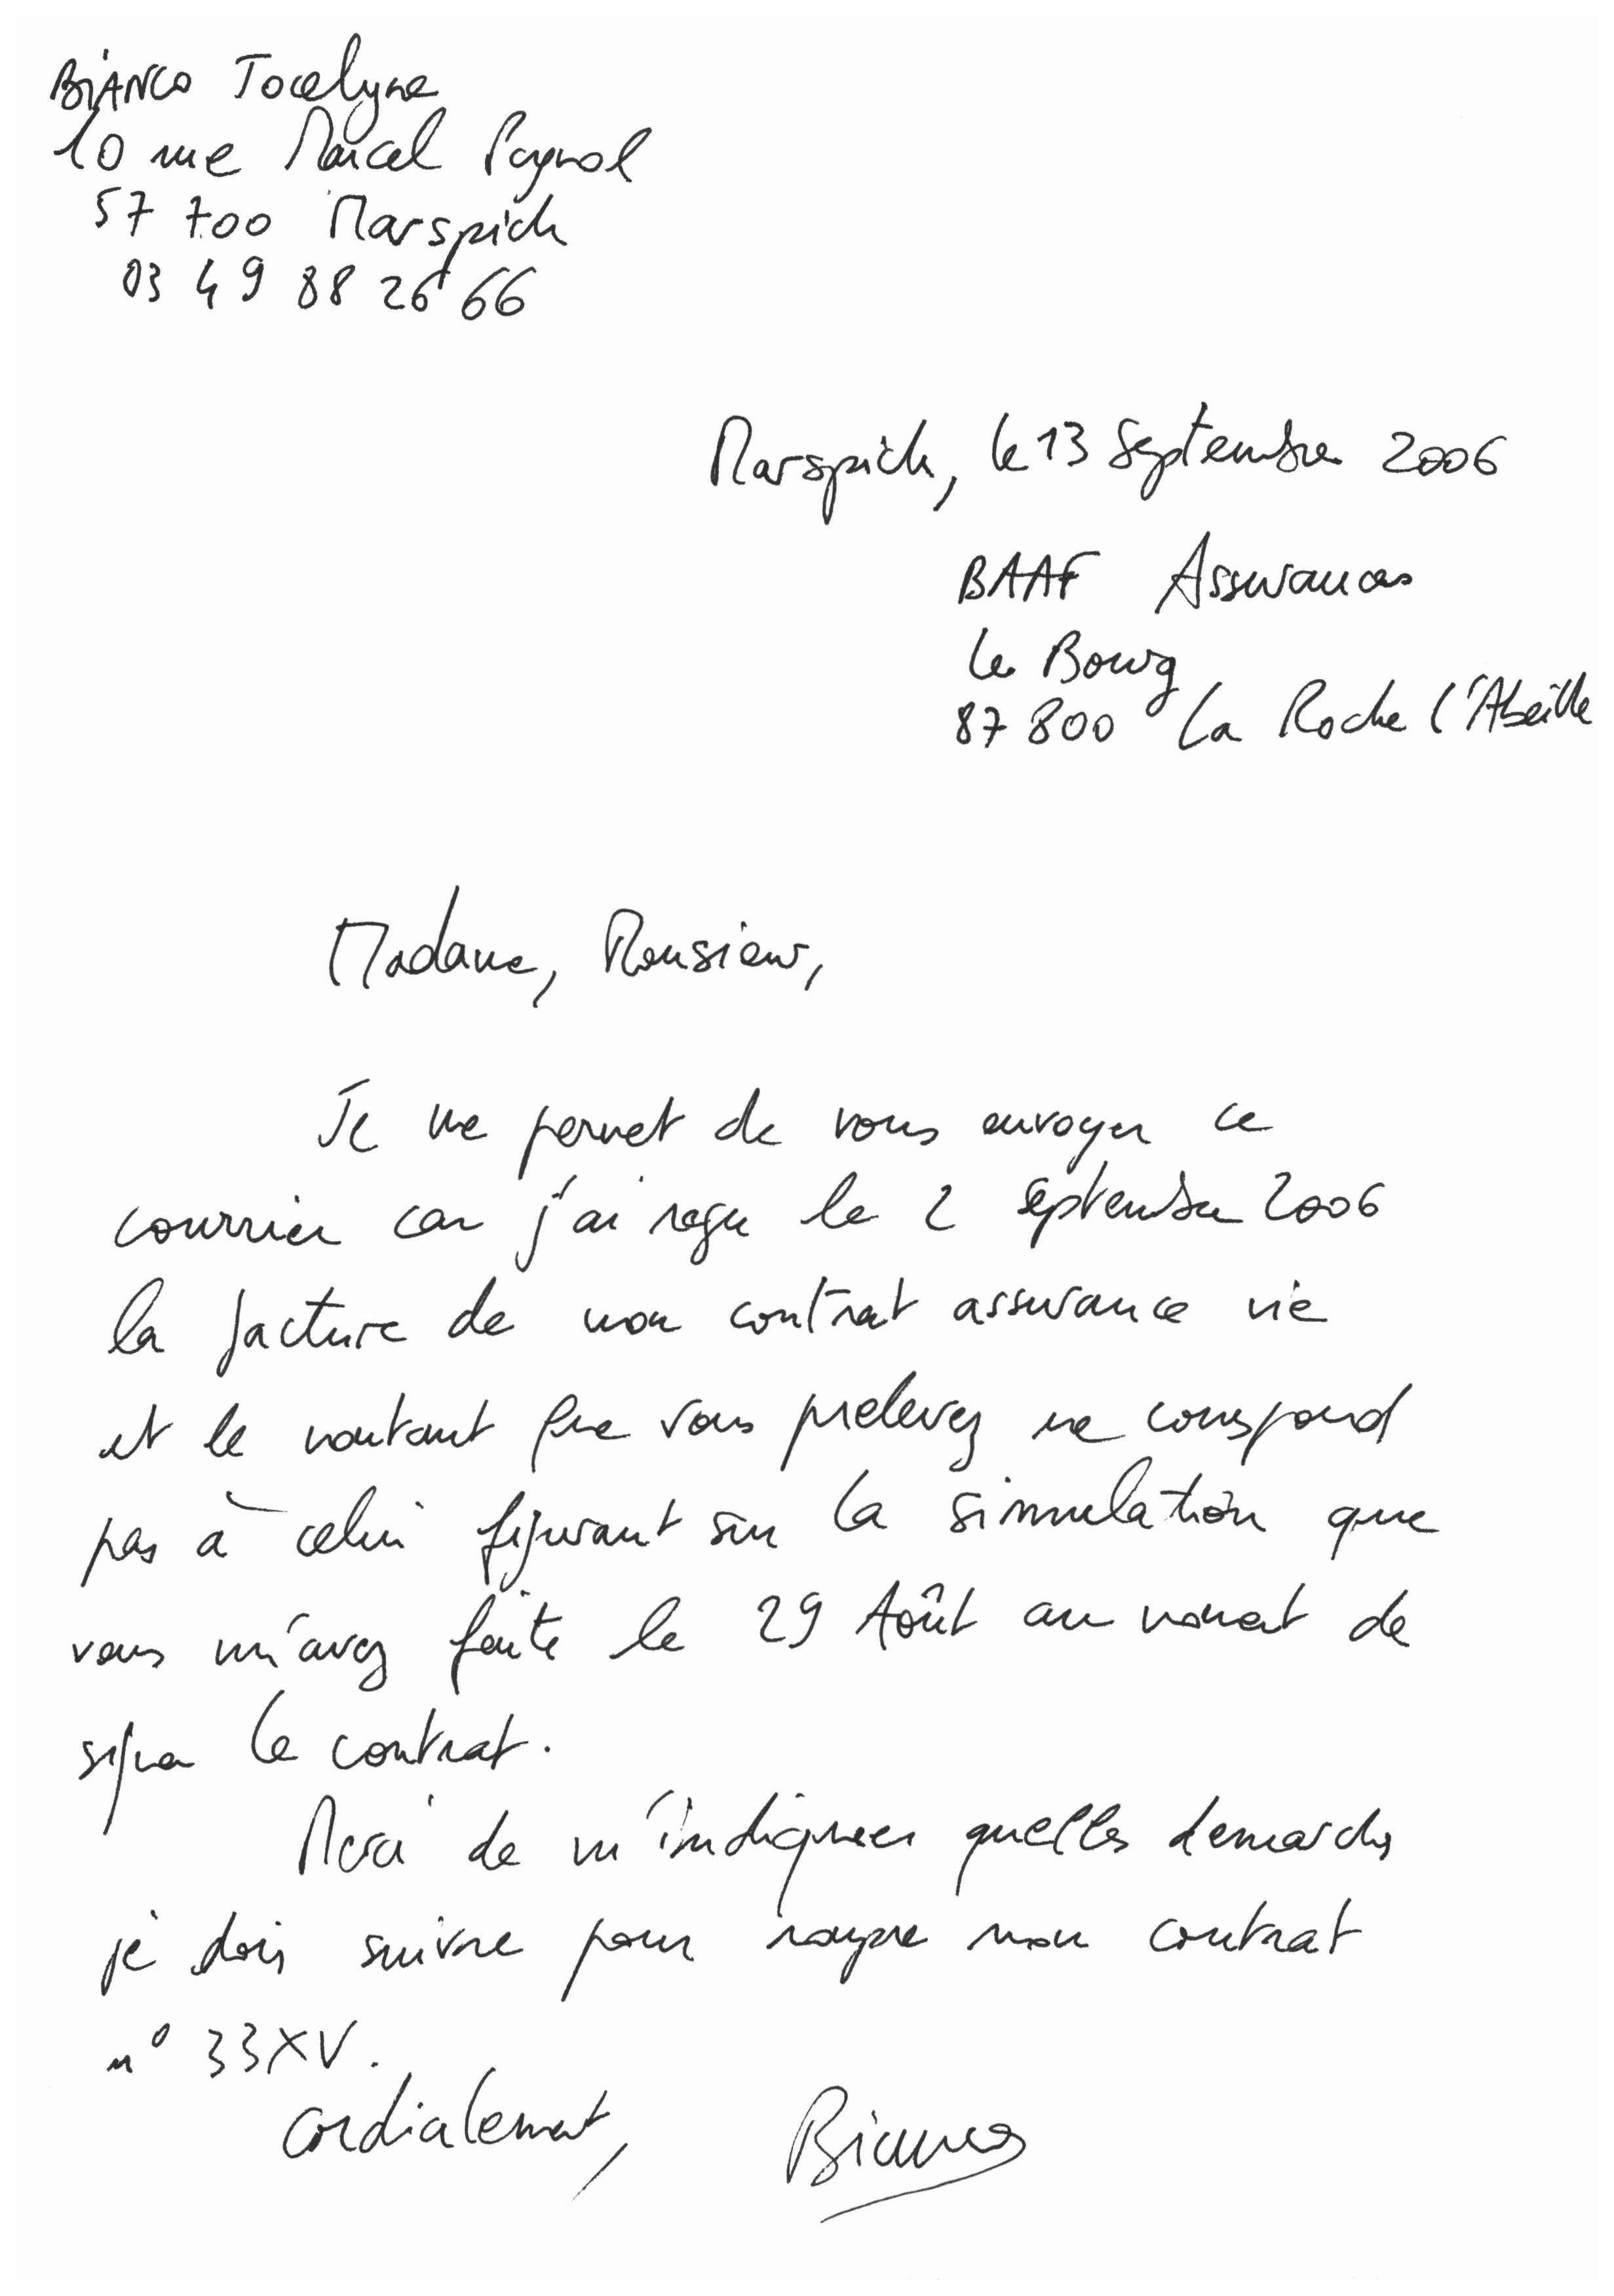 BIANCO Jocelyne
10 rue Marcel Pagnol
57 700 Marspich
03 49 88 26 66
Marspich, le 13 Septembre 2006
BAAF Assurances
Le Bourg
87 800 La Roche l'Abeille
Madame, Monsieur,
Je me permet de vous envoyer ce
courrier car j'ai reçu le 2 septembre 2006
la facture de mon contrat assurance vie
et le montant que vous prelevez ne correspond
pas à celui figurant sur la simulation que
vous m'avez faite le 29 Août au moment de
signer le contrat.
Merci de m'indiquer quelles demarches
je dois suivre pour rompre mon contrat
n° 33XV.
Cordialement,
Bianco